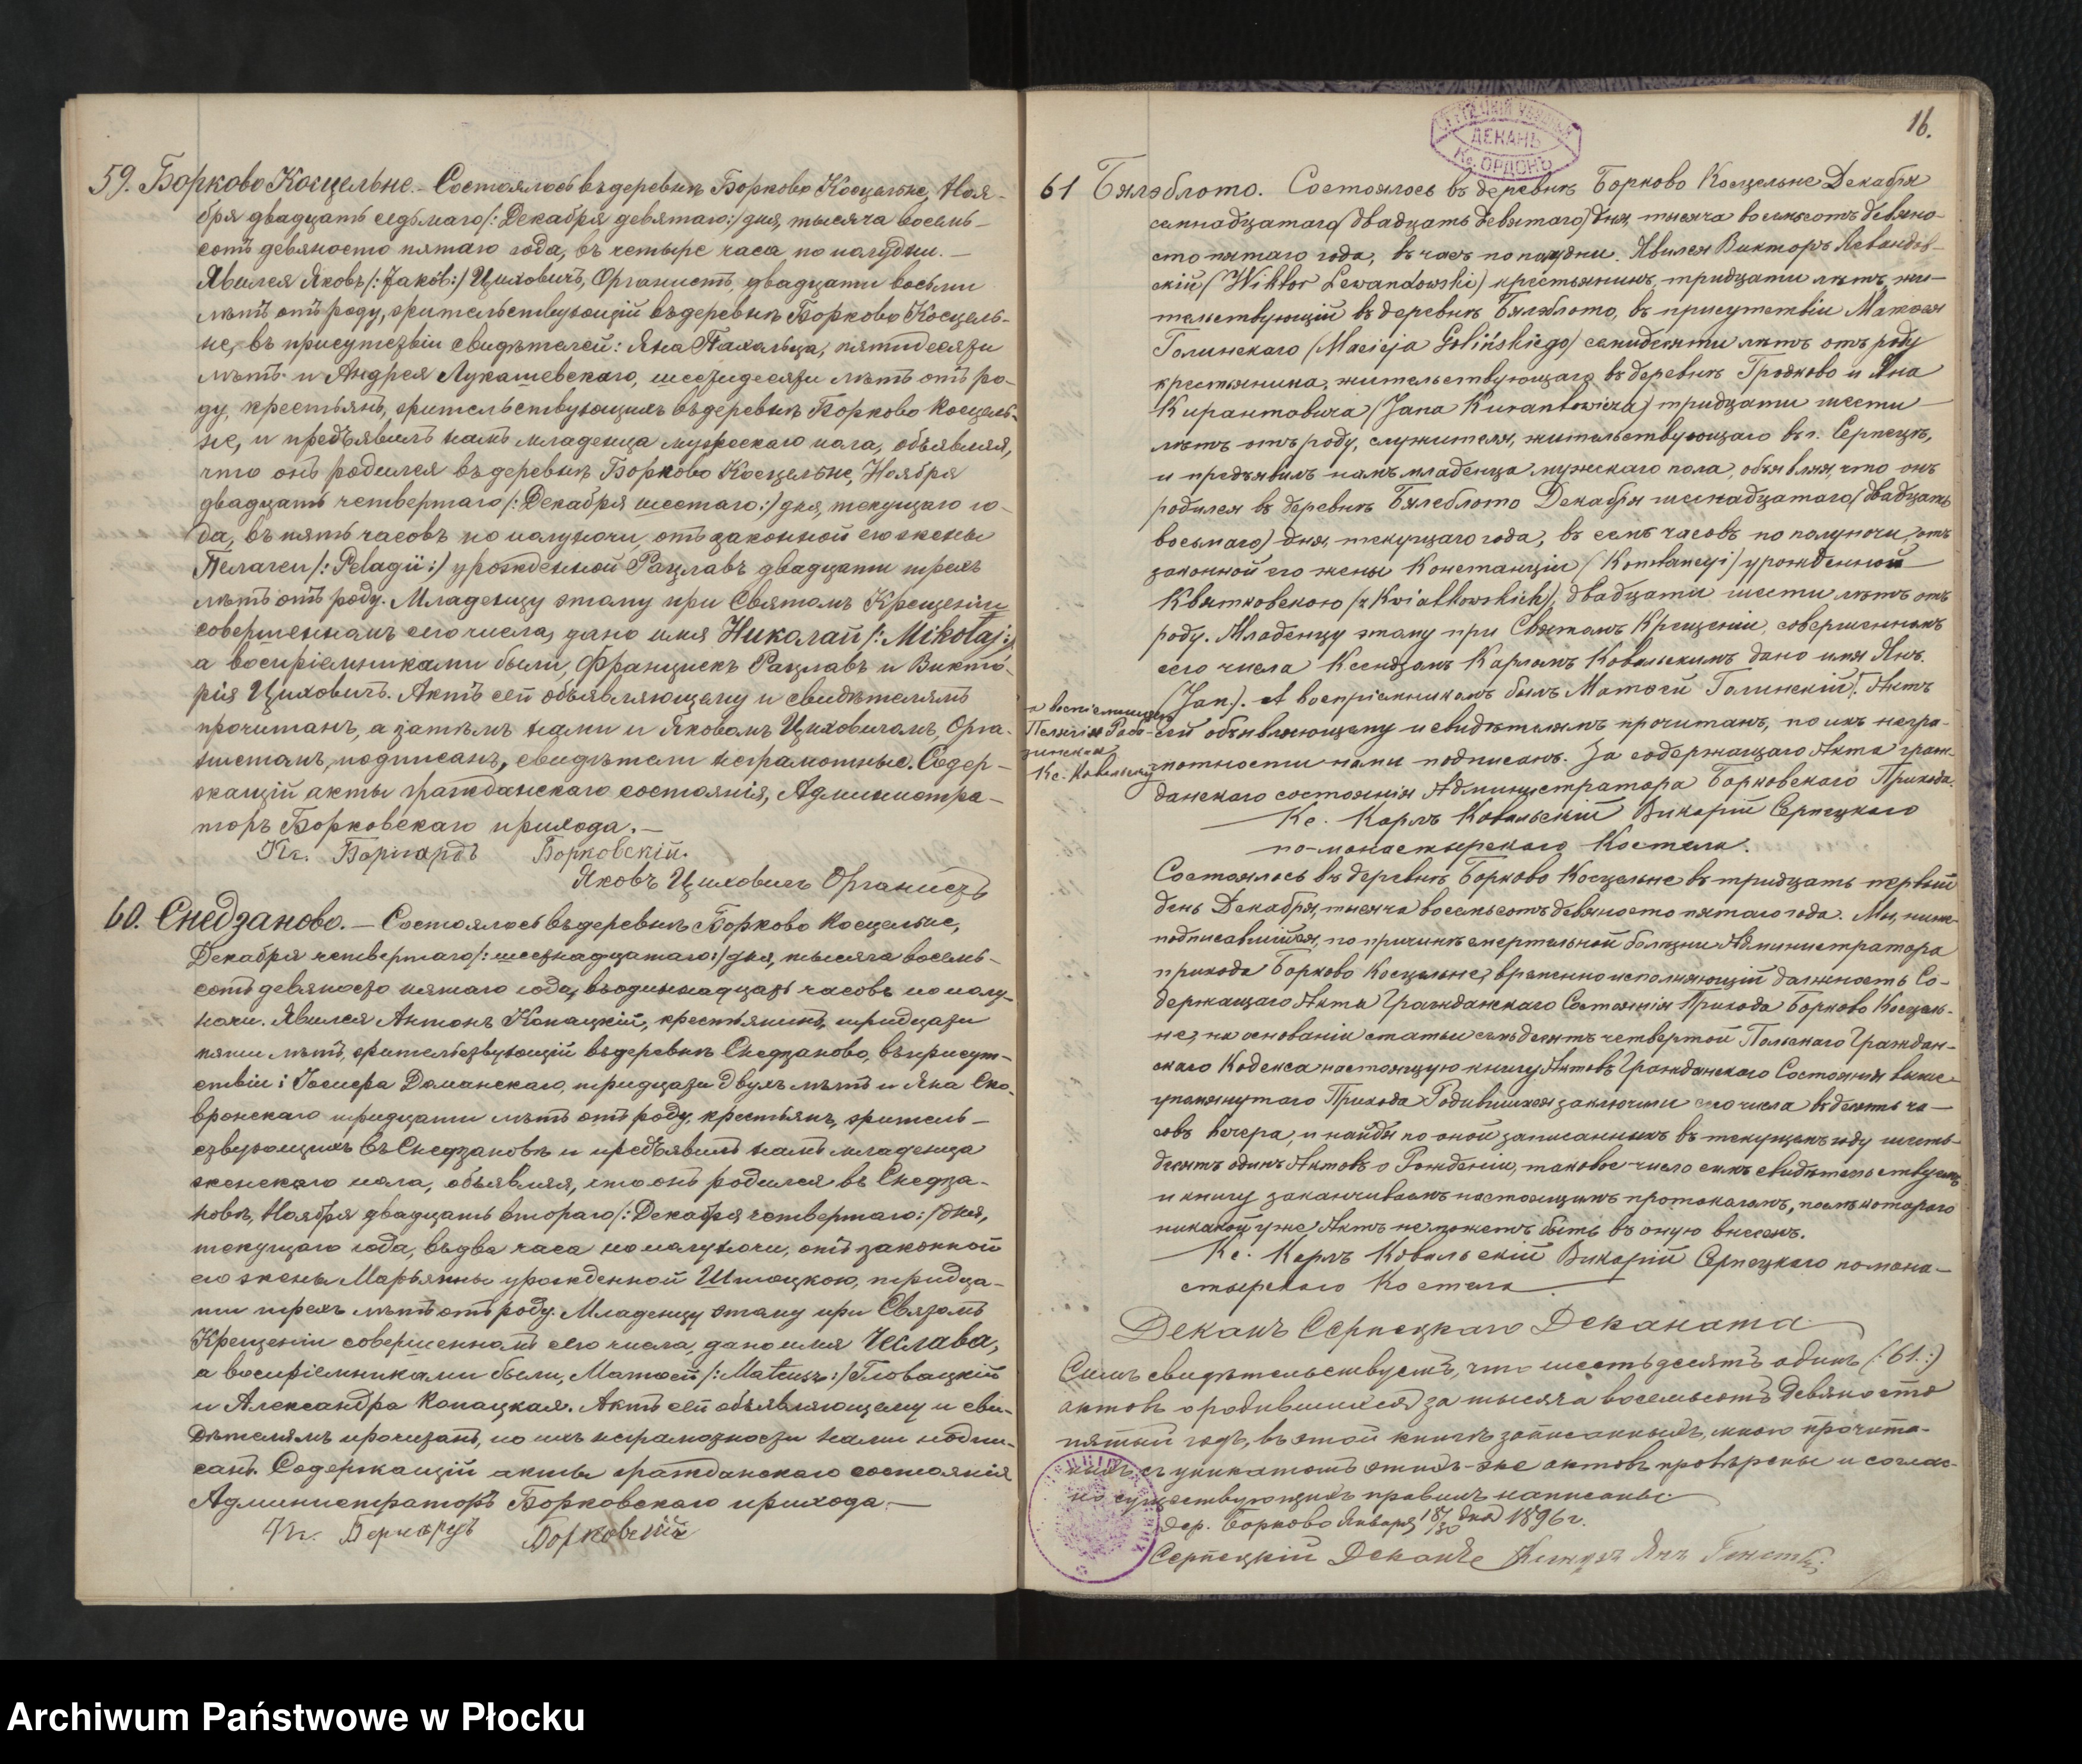 59. Борково Косцельне. Состоялось въ деревнѣ Борково Косцельне, Ноя-
бря двадцать седьмаго /: Декабря девятаго:/ дня, тысяча восемь-
сотъ девяносто пятаго года, въ четыре часа по полудни. —
Явился Яковъ /: Jakób :/ Циховичъ, Органистъ, двадцати восьми
лѣтъ отъ роду, жительствующій въ деревнѣ Борково Косцель-
не, въ присутствіи свидѣтелей: Яна Пахольца, пятидесяти
лѣтъ и Андрея Лукашевскаго, шестидесяти лѣтъ отъ ро-
ду, крестьянъ, жительствующихъ въ деревнѣ Борково Косцель-
не, и предъявилъ намъ младенца мужескаго пола, объявляя,
что онъ родился въ деревнѣ Борково Косцельне, Ноября
двадцать четвертаго /: Декабря шестаго :/ дня, текущаго го-
да, въ пять часовъ по полуночи, отъ законной его жены
Пелагеи /: Pelagii :/ урожденной Рацлавъ двадцати трехъ
лѣтъ отъ роду. Младенцу этому при Святомъ Крещеніи
совершенномъ сего числа, дано имя Николай /: Mikołaj :/
а воспріемниками были, Францискъ Рацлавъ и Викто-
рія Циховичъ. Актъ сей объявляющему и свидѣтелямъ
прочитанъ, а затѣмъ нами и Яковомъ Циховичомъ, Орга-
нистомъ, подписанъ, свидѣтели неграмотные. Содер-
жащій акты гражданскаго состоянія, Администра-
торъ Борковскаго прихода. —
Кс. Бернардъ Борковскій.
Яковъ Циховичъ Органистъ
60. Снедзаново. — Состоялось въ деревнѣ Борково Косцельне,
Декабря четвертаго /: шестнадцатаго :/ дня, тысяча восемь-
сотъ девяносто пятаго года, въ одиннадцать часовъ по полу-
ночи. Явился Антонъ Копацкій, крестьянинъ, тридцати
пяти лѣтъ, жительствующій въ деревнѣ Снедзаново, въ присут-
ствіи: Іосифа Доманскаго, тридцати двухъ лѣтъ и Яна Ско-
вронскаго тридцати лѣтъ отъ роду, крестьянъ, житель-
ствующихъ въ Снедзановѣ и предъявилъ намъ младенца
женскаго пола, объявляя, что онъ родился въ Снедза-
новѣ, Ноября двадцать втораго /: Декабря четвертаго :/ дня,
текущаго года, въ два часа по полуночи, отъ законной
его жены Марьянны урожденной тридца-
ти трехъ лѣтъ отъ роду. Младенцу этому при Святомъ
Крещеніи совершенномъ сего числа, дано имя Чеслава,
а воспріемниками были, Матѳей /: Mateusz :/ Гловацкій
и Александра Копацкая. Актъ сей объявляющему и сви-
дѣтелямъ прочитанъ, по ихъ неграмотности нами подпи-
санъ. Содержащій акты гражданскаго состоянія
Администраторъ Борковскаго прихода. —
Кс. Бернардъ Борковскій
ДЕКАНЪ
Кс. ОРДОНЪ
16.
61 Бялэблото. Состоялось въ деревнѣ Борково Косцельне Декабря
семнадцатаго (двадцать девятаго) дня, тысяча восемьсотъ девяно-
сто пятаго года, въ часъ по полудни. Явился Викторъ Левандов-
скій (Wiktor Lewandowski) крестьянинъ, тридцати лѣтъ, жи-
тельствующій въ деревнѣ Бялэблото, въ присутствіи Матвея
Голинскаго (Macieja Golińskiego) семидесяти лѣтъ отъ роду
крестьянина, жительствующаго въ деревнѣ Гродково и Яна
Курантовича (Jana Kurantowicza) тридцати шести
лѣтъ отъ роду, служителя, жительствующаго въ г. Серпецѣ,
и предъявилъ намъ младенца мужескаго пола, объявляя, что онъ
родился въ деревнѣ Бялеблото Декабря шестнадцатаго (двадцать
восьмаго) дня, текущаго года, въ семь часовъ по полуночи, отъ
законной его жены Констанціи (Konstancyi) урожденной
Квятковскою (z Kwiatkowskich), двадцати шести лѣтъ отъ
роду. Младенцу этому при Святомъ Крещеніи, совершенномъ
сего числа Ксендзомъ Карломъ Ковальскимъ дано имя Янъ.
(Jan). А воспріемникомъ былъ Матвей Голинскій. Актъ
сей объявляющему и свидѣтелямъ прочитанъ, по ихъ негра-
мотности нами подписанъ. За содержащаго Акта граж-
данскаго состоянія Администратора Борковскаго Прихода.
а воспріемницею
Пелагія
Кс. Ковальскій
Кс. Карлъ Ковальскій Викарій Серпецкаго
по-монастырскаго Костела.
Состоялось въ деревнѣ Борково Косцельне въ тридцать первый
день Декабря, тысяча восемьсотъ девяносто пятаго года. Мы, ниже-
подписавшійся, по причинѣ смертельной болѣзни Администратора
прихода Борково Косцельне, временно исполняющій должность Со-
держащаго Акты Гражданскаго Состоянія Прихода Борково Косцель-
не, на основаніи статьи семьдесятъ четвертой Польскаго Граждан-
скаго Кодекса настоящую книгу Актовъ Гражданскаго Состоянія выше-
упомянутаго Прихода Родившихся заключили сего числа въ десять ча-
совъ вечера, и найдя по оной записанныхъ въ текущемъ году шесть-
десятъ одинъ Актовъ о Рожденіи, таковое число симъ свидѣтельствуемъ
и книгу заканчиваемъ настоящимъ протоколомъ, послѣ котораго
никакой уже Актъ не можетъ быть въ оную внесенъ.
Кс. Карлъ Ковальскій Викарій Серпецкаго помона-
стырскаго Костела.
Деканъ Серпецкаго Деканата
Симъ свидѣтельствуетъ, что шестьдесятъ одинъ (: 61. :)
актовъ о родившихся за тысяча восемьсотъ девяносто
пятый годъ, въ этой книгѣ записанныхъ, мною прочита-
ны, съ уникатомъ этихъ-же актовъ провѣрены и соглас-
но существующихъ правилъ написаны.
Дер. Борково Января 18/30 дня 1896 г.
Серпецкій Деканъ Ксендзъ Янъ
Archiwum Państwowe w Płocku